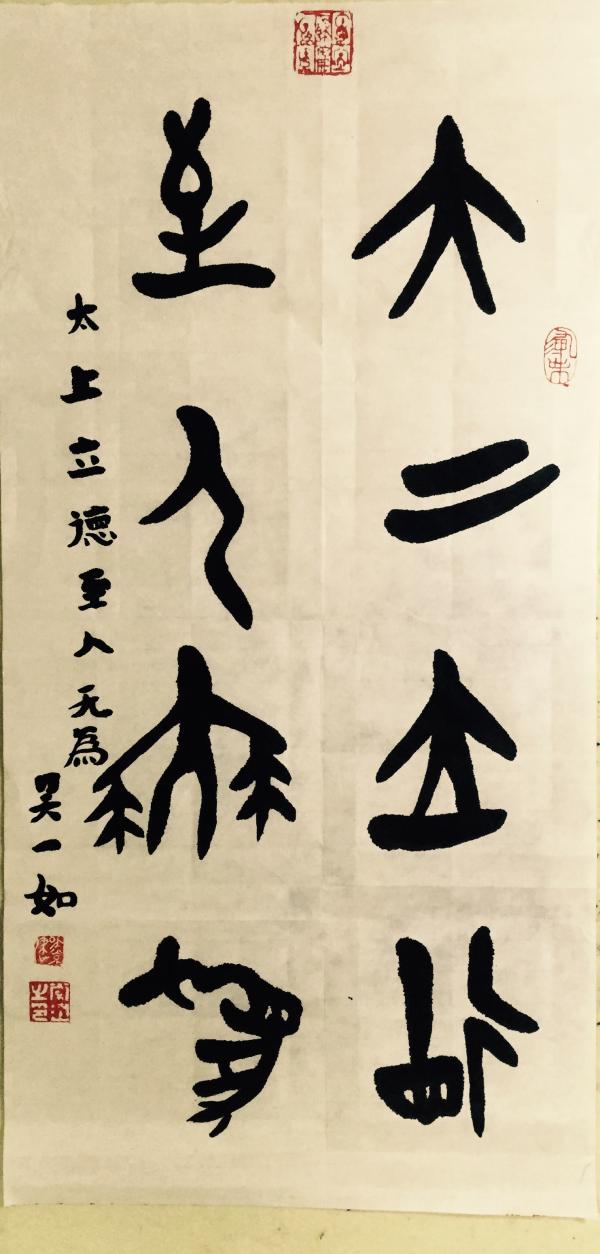 大上立德
至人無為
太上立德至人无為
吴一如